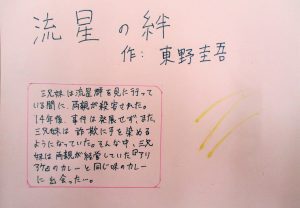 流星の絆
作：東野圭吾
三兄妹は流星群を見に行って
いる間に、両親が殺害された。
14年後、事件は発展せず、また、
三兄妹は詐欺に手を染める
ようになっていた。そんな中、三兄
妹は両親が経営していた『アリ
アケ』のカレーと同じ味のカレー
に出会った…